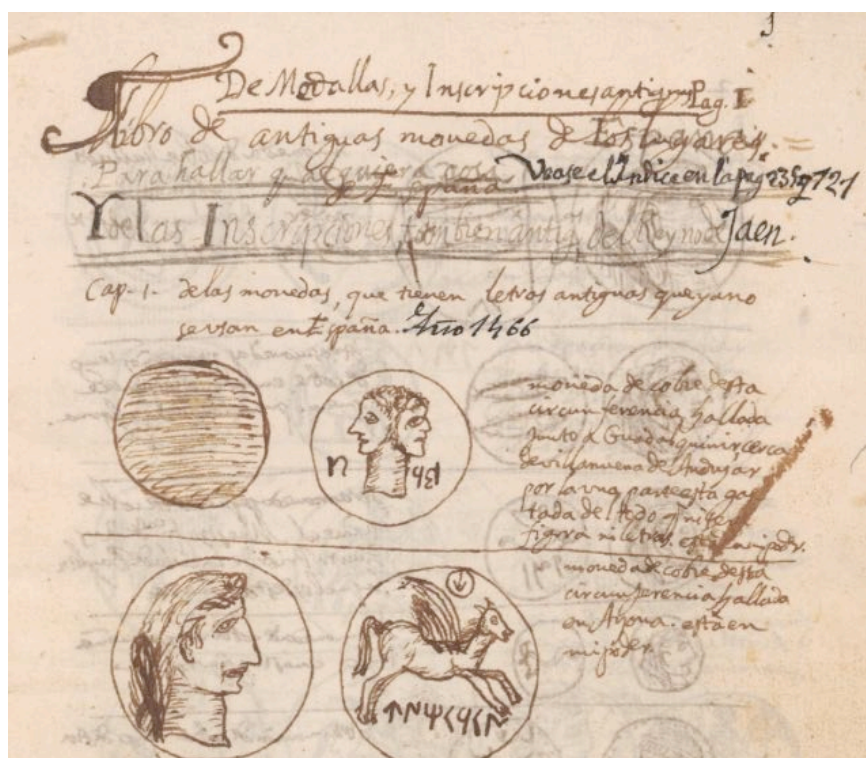 De Medallas, y Inscripciones antiguas Pag. I
Libro de antiguas monedas de los lugares
Para hallar qualquiera cosa Vease el Indice en la pag.
de España
Y de las Inscripciones tambien antig. del Reyno de Jaen.
Cap. 1. de las monedas, que tienen letras antiguas que ya no
se usan en España. Año 1466
moneda de cobre desta
circunferencia hallada
junto a Guadalquiuir cerca
de villanueua de Andujar
por la una parte esta gas
tada del todo q ni tiene
figura ni letras. esta en mi poder.
moneda de cobre desta
circunferencia hallada
en Arjona. esta en
mi poder.